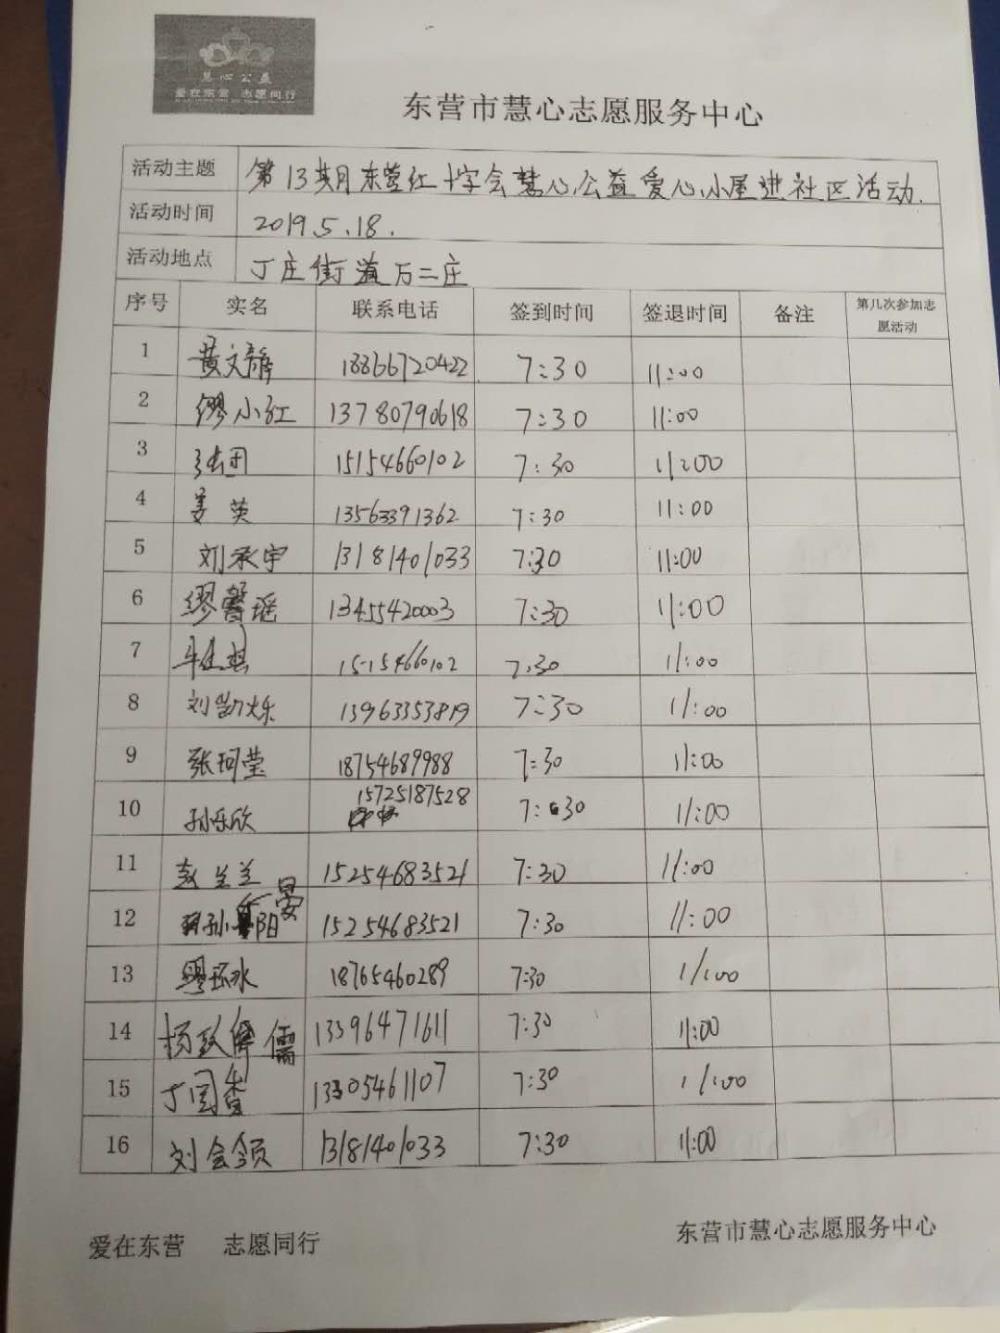 慧心公益
爱在东营 志愿同行
东营市慧心志愿服务中心
活动主题 第13期东营红十字会慧心公益爱心小屋进社区活动.
活动时间 2019.5.18.
活动地点 丁庄街道万二庄
序号 实名 联系电话 签到时间 签退时间 备注 第几次参加志愿活动
1 黄文静 18866720422 7:30 11:00
2 缪小红 13780790618 7:30 11:00
3 15154660102 7:30 11:00
4 姜英 13563391362 7:30 11:00
5 刘承宇 13181401033 7:30 11:00
6 缪馨瑶 13455420003 7:30 11:00
7 15154660102 7:30 11:00
8 刘凯烁 13963353819 7:30 11:00
9 张珂莹 18754689988 7:30 11:00
10 孙乐欣 15725187528 7:30 11:00
11 赵兰兰 15254683521 7:30 11:00
12 孙晏阳 15254683521 7:30 11:00
13 缪环水 18765460289 7:30 11:00
14 杨玖儒 13396471611 7:30 11:00
15 丁国香 13305461107 7:30 11:00
16 刘会领 13181401033 7:30 11:00
爱在东营 志愿同行 东营市慧心志愿服务中心